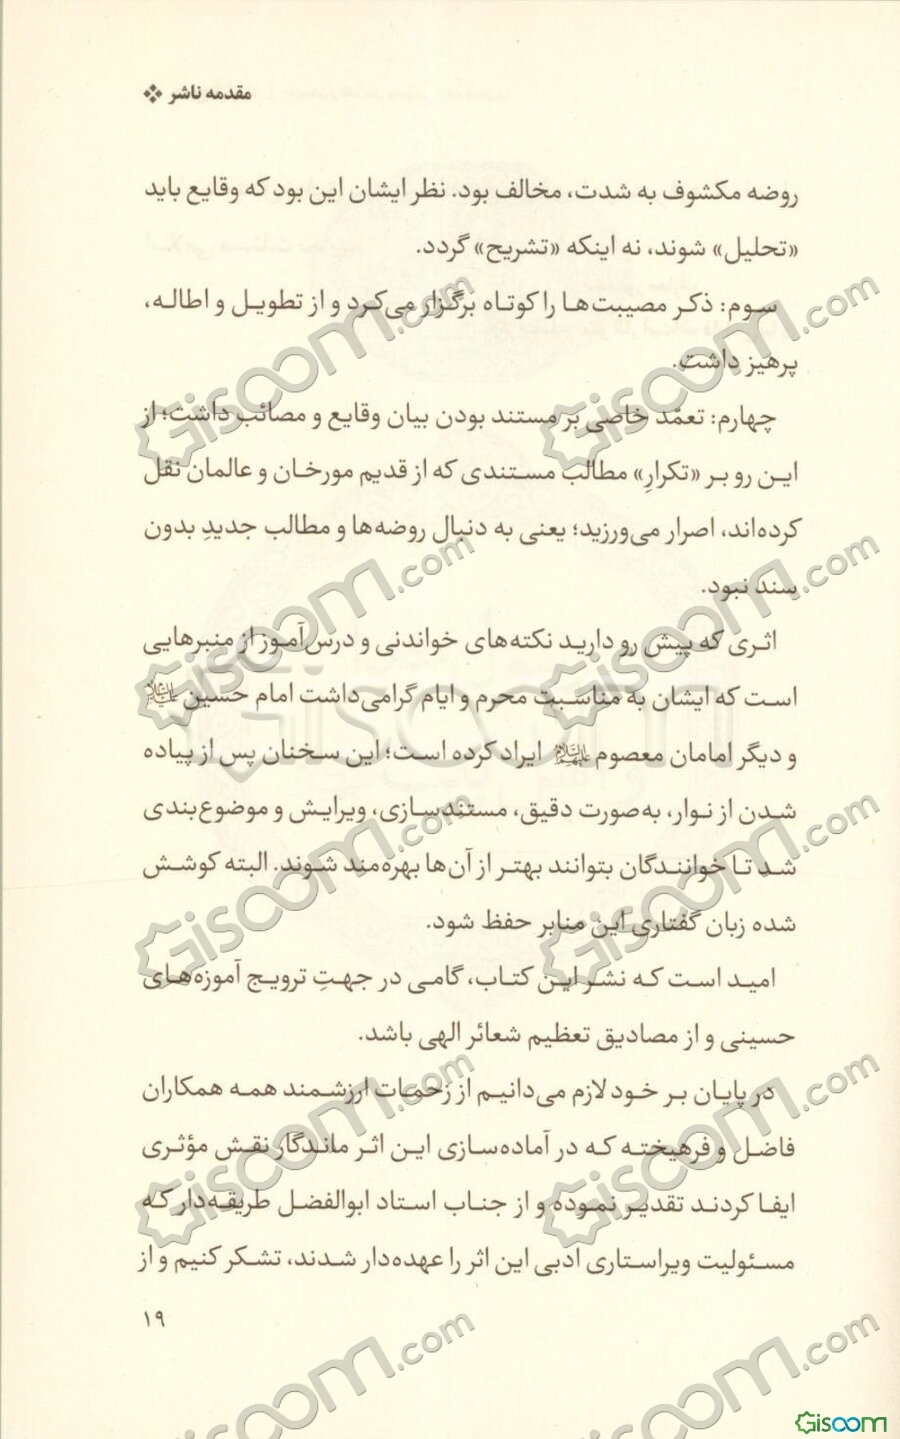 مقدمه ناشر
روضه مکشوف به شدت، مخالف بود. نظر ایشان این بود که وقایع باید
«تحلیل» شوند، نه اینکه «تشریح» گردد.
سوم: ذکر مصیبت‌ها را کوتاه برگزار می‌کرد و از تطویل و اطاله،
پرهیز داشت.
چهارم: تعمّد خاصی بر مستند بودن بیان وقایع و مصائب داشت؛ از
این رو بر «تکرارِ» مطالب مستندی که از قدیم مورخان و عالمان نقل
کرده‌اند، اصرار می‌ورزید؛ یعنی به دنبال روضه‌ها و مطالب جدیدِ بدون
سند نبود.
اثری که پیش رو دارید نکته‌های خواندنی و درس‌آموز از منبرهایی
است که ایشان به مناسبت محرم و ایام گرامی‌داشت امام حسین علیه‌السلام
و دیگر امامان معصوم علیهم‌السلام ایراد کرده است؛ این سخنان پس از پیاده
شدن از نوار، به‌صورت دقیق، مستندسازی، ویرایش و موضوع‌بندی
شد تا خوانندگان بتوانند بهتر از آن‌ها بهره‌مند شوند. البته کوشش
شده زبان گفتاری این منابر حفظ شود.
امید است که نشر این کتاب، گامی در جهتِ ترویج آموزه‌های
حسینی و از مصادیق تعظیم شعائر الهی باشد.
در پایان بر خود لازم می‌دانیم از زحمات ارزشمند همه همکاران
فاضل و فرهیخته که در آماده‌سازی این اثر ماندگار نقش مؤثری
ایفا کردند تقدیر نموده و از جناب استاد ابوالفضل طریقه‌دار که
مسئولیت ویراستاری ادبی این اثر را عهده‌دار شدند، تشکر کنیم و از
۱۹
Giscom.com
Giscom.com
Giscom.com
Giscom.com
Giscom
Giscom.com
Giscom.com
Giscom.com
Giscom.com
Giscom.com
Giscom.com
Giscom